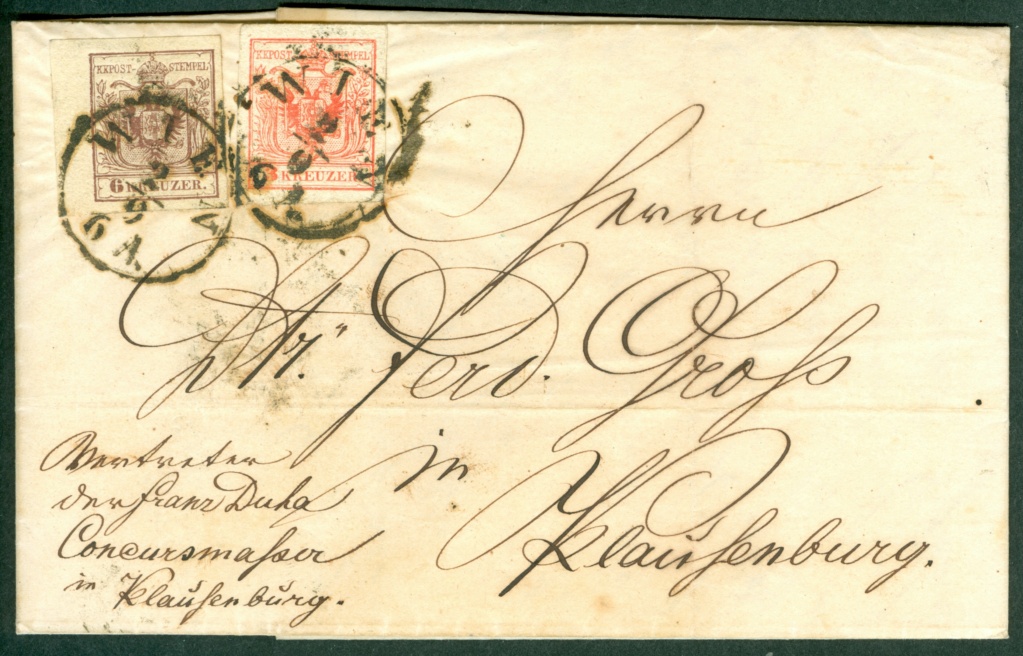 KKPOST-STEMPEL
6 KREUZER.
KKPOST-STEMPEL
3 KREUZER
WIEN
WIEN
Herrn
Dr. Ferd. Gross
in
Klausenburg.
Vertreter
der Franz Duha
Concursmasser
in Klausenburg.